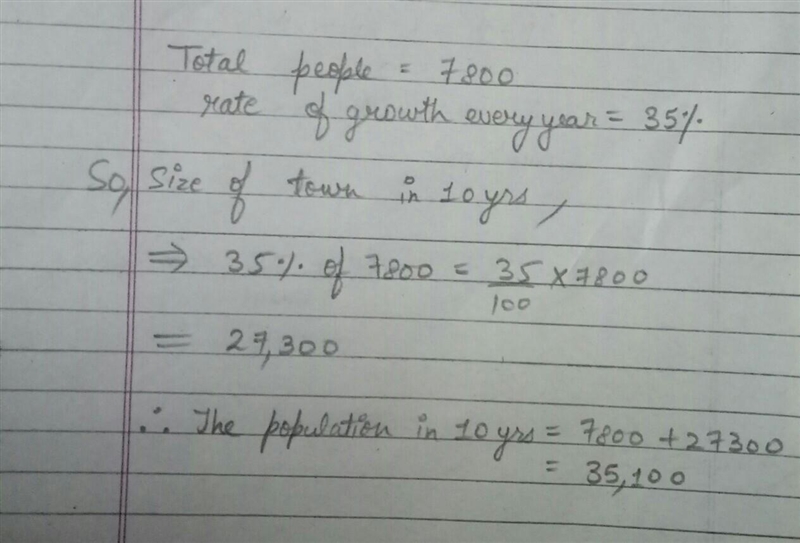 Total people = 7800
rate of growth every year = 35%.
So, Size of town in 10 yrs,
⇒ 35% of 7800 = 35/100 × 7800
= 27,300
∴ The population in 10 yrs = 7800 + 27300
= 35,100